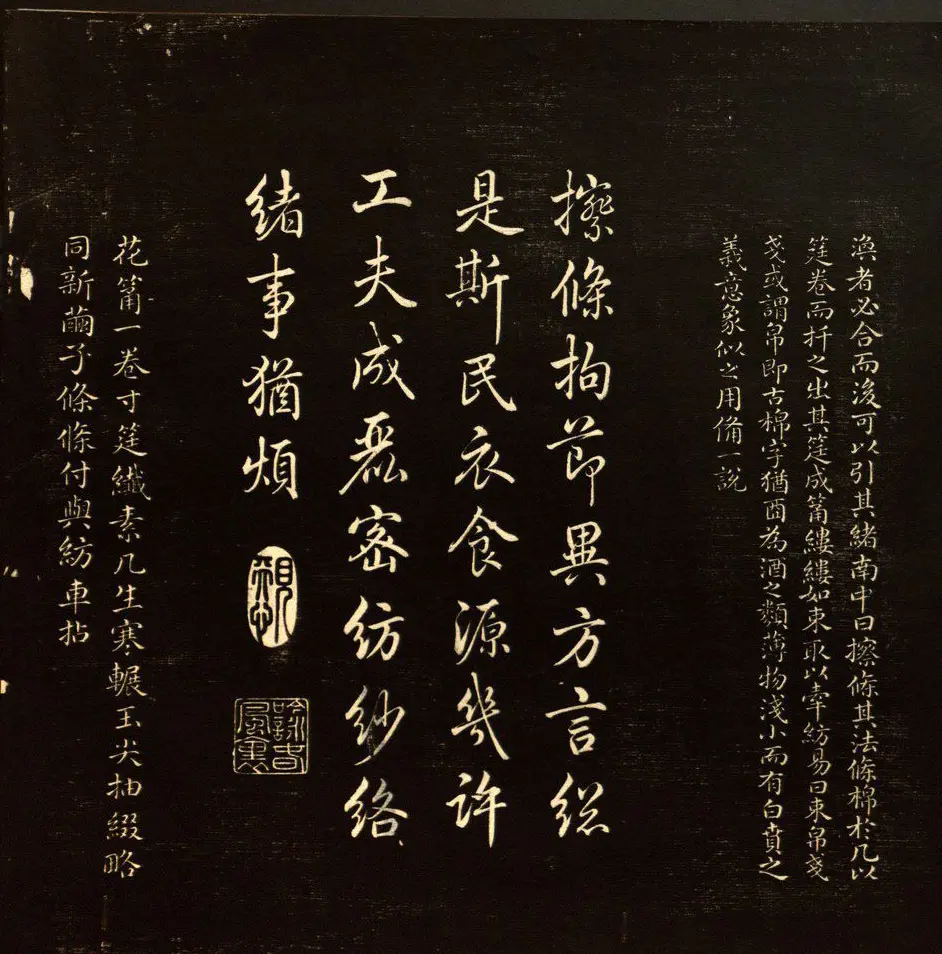 渙者必合而後可以引其緒南中曰擦條其法條棉於几以
筳卷而扞之出其筳成筩縷縷如束取以牽紡易曰束帛戔
戔或謂帛即古棉字猶酉為酒之類薄物淺小而有白賁之
義意象似之用備一說
擦條拘節異方言総
是斯民衣食源幾許
工夫成麤密紡紗絡
緒事猶煩
花筩一卷寸筳纖素几生寒輾玉尖抽綴略
同新繭子條條付與紡車拈